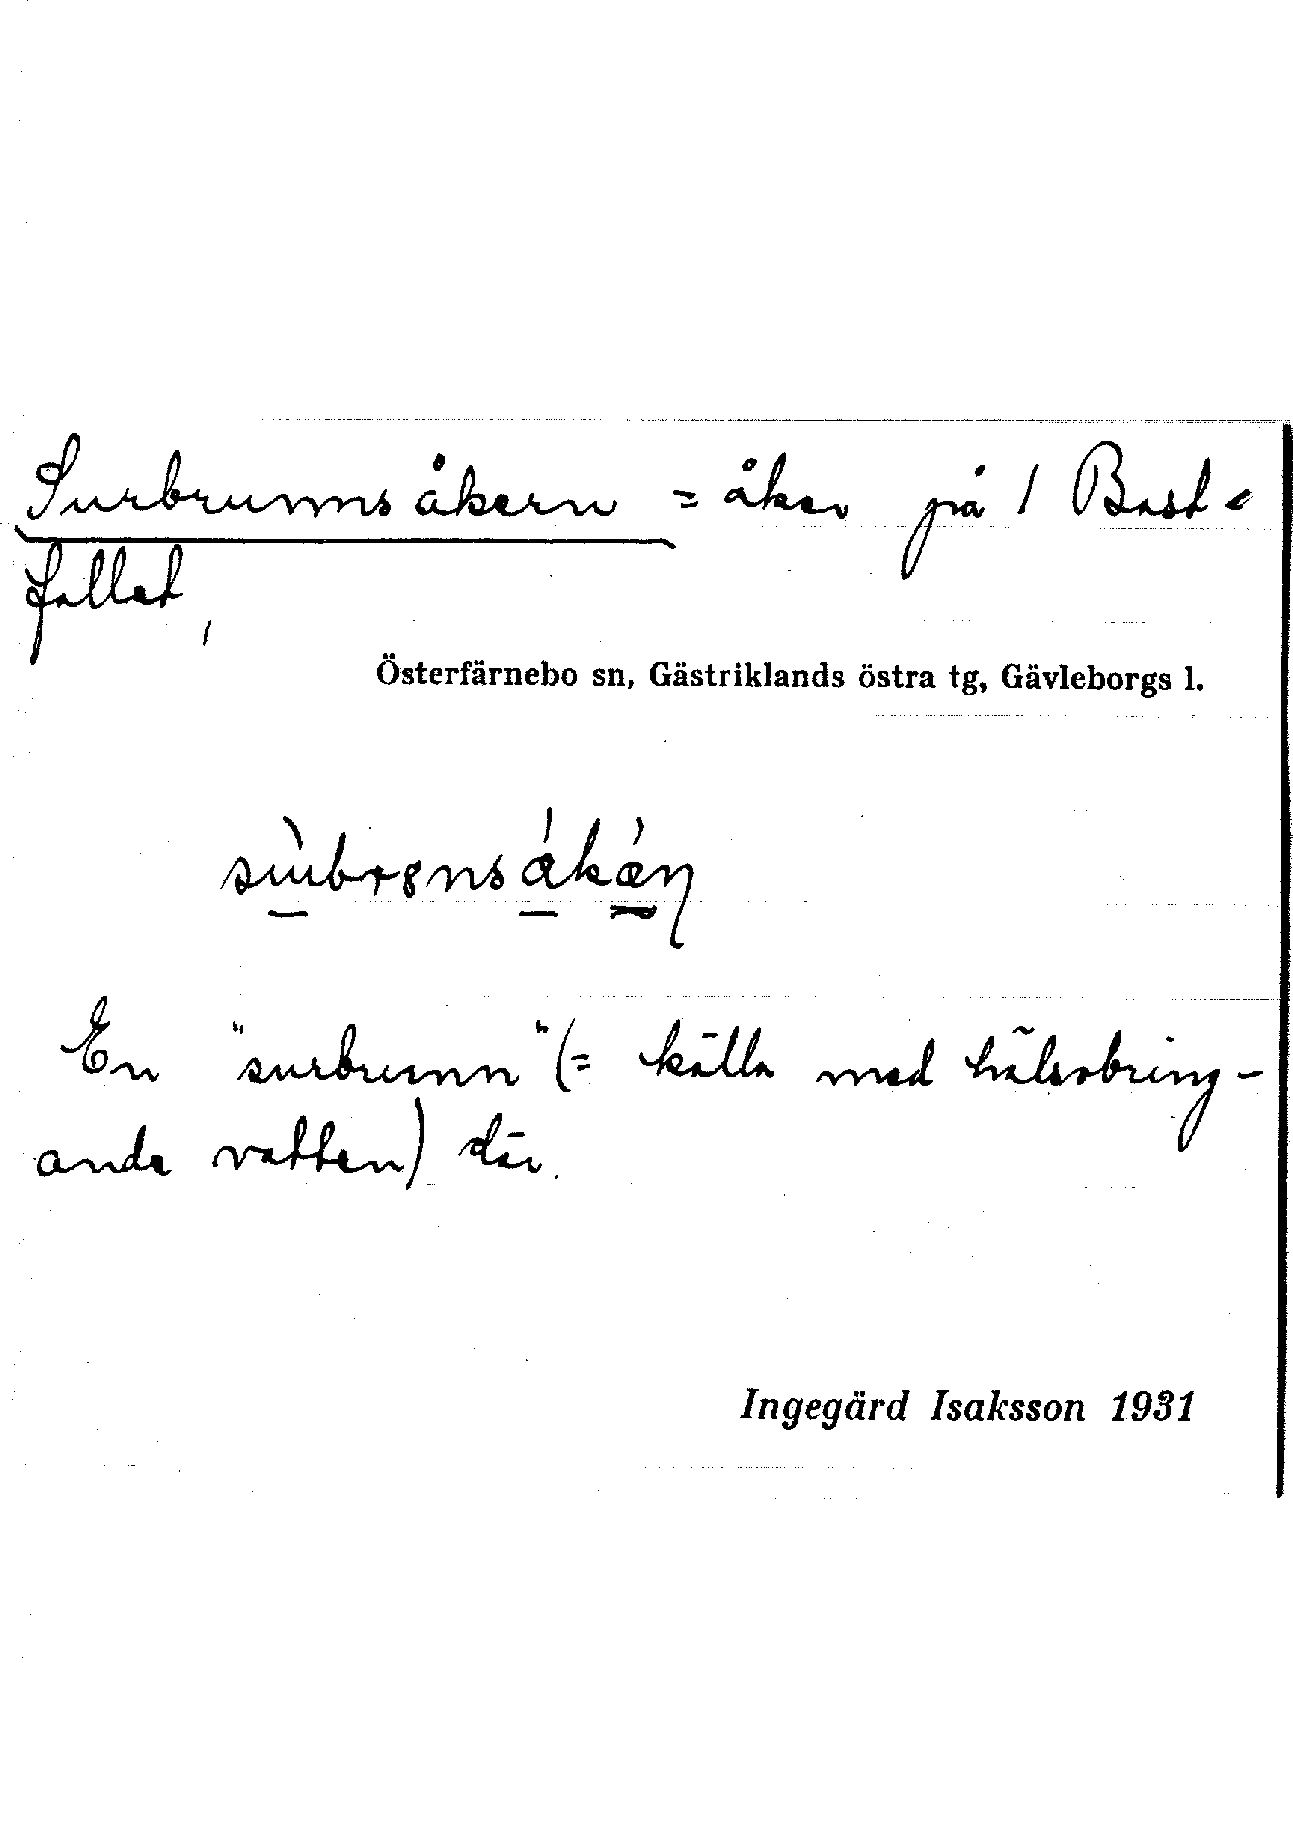 Surbrunnsåkern = åker på 1 Bast-
fallet,
Österfärnebo sn, Gästriklands östra tg, Gävleborgs l.
En "surbrunn" (= källa med hälsobring-
ande vatten) där.
Ingegärd Isaksson 1931